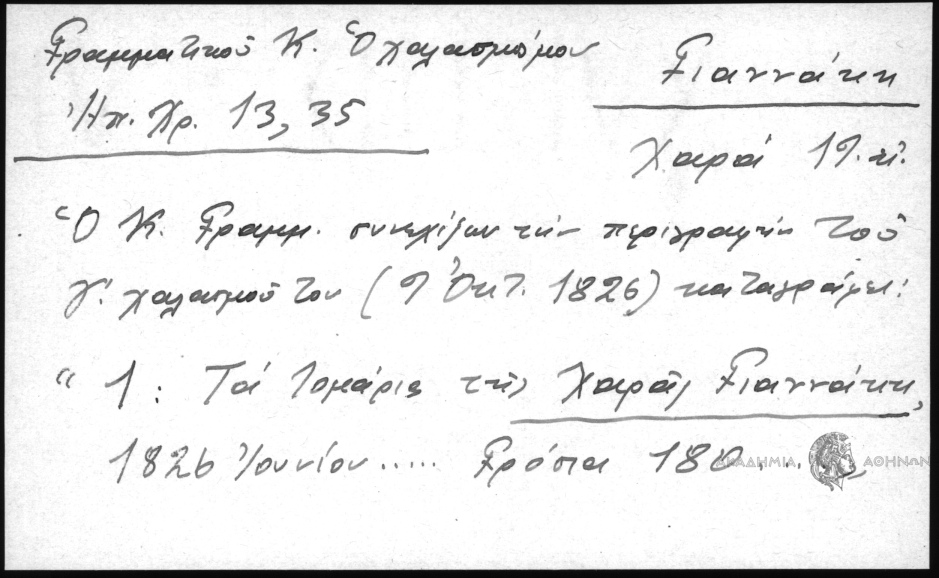 Γραμματικοῦ Κ. Ὁ χαλασμός μου
Γιαννάκη
Ἠπ. Χρ. 13, 35
Χαρά 19. αἰ.
"Ὁ Κ. Γραμμ. συνεχίζων τὴν περιγραφὴν τοῦ
γ'. χαλασμοῦ του (9 Ὀκτ. 1826) καταγράφει:
" 1: Τά ... τῆς Χαρᾶς Γιαννάκη,
1826 Ἰουνίου ..... Γρόσια 180...
ΑΚΑΔΗΜΙΑ ΑΘΗΝΩΝ